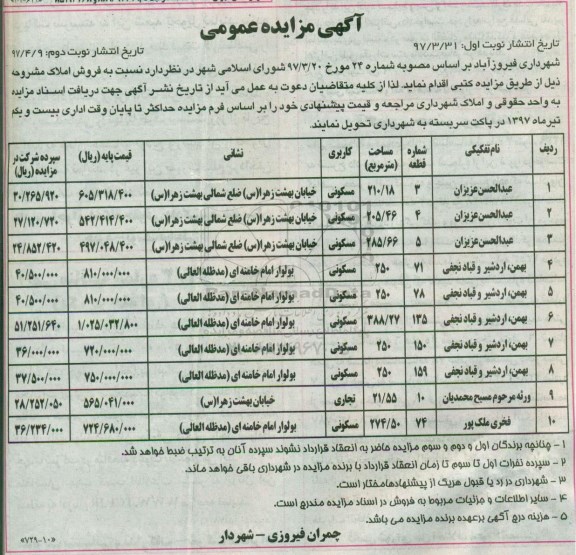 آگهی مزایده عمومی
تاریخ انتشار نوبت اول: ۹۷/۳/۳۱
تاریخ انتشار نوبت دوم: ۹۷/۴/۹
شهرداری فیروزآباد بر اساس مصوبه شماره ۲۴ مورخ ۹۷/۳/۲۰ شورای اسلامی شهر در نظر دارد نسبت به فروش املاک مشروحه
ذیل از طریق مزایده کتبی اقدام نماید. لذا از کلیه متقاضیان دعوت به عمل می آید از تاریخ نشر آگهی جهت دریافت اسناد مزایده
به واحد حقوقی و املاک شهرداری مراجعه و قیمت پیشنهادی خود را بر اساس فرم مزایده حداکثر تا پایان وقت اداری بیست و یکم
تیرماه ۱۳۹۷ در پاکت سربسته به شهرداری تحویل نمایند.
ردیف نام تفکیکی شماره قطعه مساحت (مترمربع) کاربری نشانی قیمت پایه (ریال) سپرده شرکت در مزایده (ریال)
۱ عبدالحسن عزیزان ۳ ۲۱۰/۱۸ مسکونی خیابان بهشت زهرا(س) ضلع شمالی بهشت زهرا(س) ۶۰۵/۳۱۸/۴۰۰ ۳۰/۲۶۵/۹۲۰
۲ عبدالحسن عزیزان ۴ ۲۰۵/۴۶ مسکونی خیابان بهشت زهرا(س) ضلع شمالی بهشت زهرا(س) ۵۴۲/۴۱۴/۴۰۰ ۲۷/۱۲۰/۷۲۰
۳ عبدالحسن عزیزان ۵ ۲۸۵/۶۶ مسکونی خیابان بهشت زهرا(س) ضلع شمالی بهشت زهرا(س) ۴۹۷/۰۴۸/۴۰۰ ۲۴/۸۵۲/۴۲۰
۴ بهمن، اردشیر و قباد نجفی ۷۱ ۲۵۰ مسکونی بولوار امام خامنه ای (مدظله العالی) ۸۱۰/۰۰۰/۰۰۰ ۴۰/۵۰۰/۰۰۰
۵ بهمن، اردشیر و قباد نجفی ۷۸ ۲۵۰ مسکونی بولوار امام خامنه ای (مدظله العالی) ۸۱۰/۰۰۰/۰۰۰ ۴۰/۵۰۰/۰۰۰
۶ بهمن، اردشیر و قباد نجفی ۱۳۵ ۳۸۸/۲۷ مسکونی بولوار امام خامنه ای (مدظله العالی) ۱/۰۲۵/۰۳۲/۸۰۰ ۵۱/۲۵۱/۶۴۰
۷ بهمن، اردشیر و قباد نجفی ۱۵۰ ۲۵۰ مسکونی بولوار امام خامنه ای (مدظله العالی) ۷۲۰/۰۰۰/۰۰۰ ۳۶/۰۰۰/۰۰۰
۸ بهمن، اردشیر و قباد نجفی ۱۵۹ ۲۵۰ مسکونی بولوار امام خامنه ای (مدظله العالی) ۷۵۰/۰۰۰/۰۰۰ ۳۷/۵۰۰/۰۰۰
۹ ورثه مرحوم مسیح محمدیان ۱۰ ۲۱/۵۵ تجاری خیابان بهشت زهرا(س) ۵۶۵/۰۴۱/۰۰۰ ۲۸/۲۵۲/۰۵۰
۱۰ فخری ملک پور ۷۴ ۲۷۴/۵۰ مسکونی بولوار امام خامنه ای (مدظله العالی) ۷۲۴/۶۸۰/۰۰۰ ۳۶/۲۳۴/۰۰۰
۱ - چنانچه برندگان اول و دوم و سوم مزایده حاضر به انعقاد قرارداد نشوند سپرده آنان به ترتیب ضبط خواهد شد.
۲ - سپرده نفرات اول تا سوم تا زمان انعقاد قرارداد با برنده مزایده در شهرداری باقی خواهد ماند.
۳ - شهرداری در رد یا قبول هریک از پیشنهادها مختار است.
۴ - سایر اطلاعات و جزئیات مربوط به فروش در اسناد مزایده مندرج است.
۵ - هزینه درج آگهی برعهده برنده مزایده می باشد.
چمران فیروزی - شهردار
«۷۲۹-۱۰»